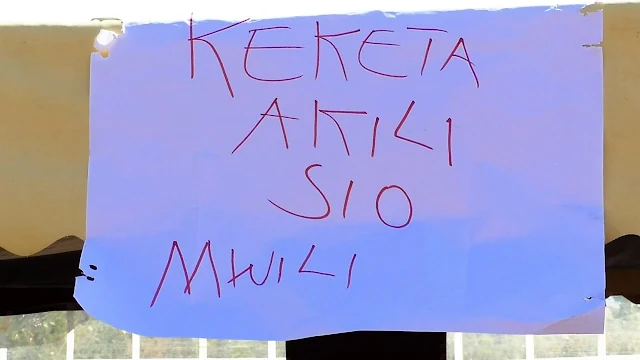 KEKETA
AKILI
SIO
MWILI